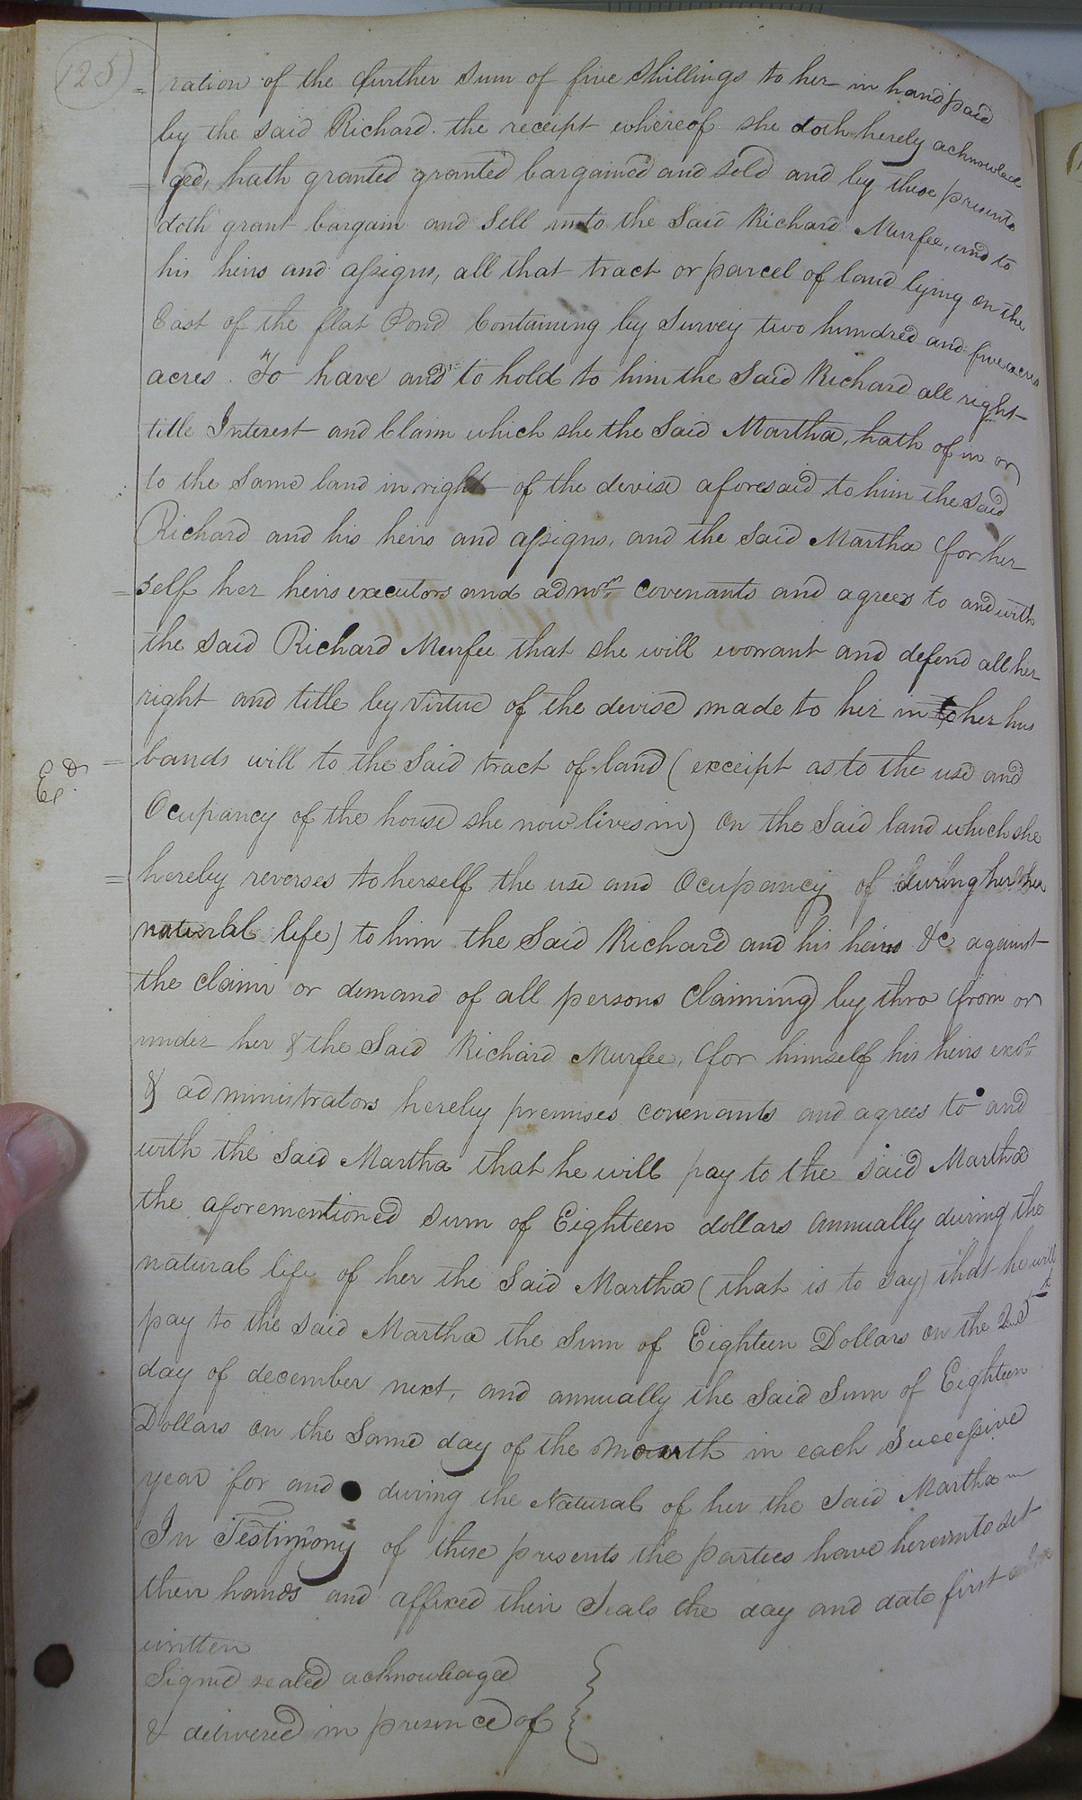 125)
= ration of the further sum of five Shillings to her in hand paid
by the said Richard the receipt whereof she doth hereby acknowled
= ged, hath granted granted bargained and sold and by these presents
doth grant bargain and Sell unto the Said Richard Murfee, and to
his heirs and assigns, all that tract or parcel of land lying on the
East of the flat Pond Containing by Survey two hundred and five acres
acres. To have and to hold to him the Said Richard all right
title Interest and Claim which she the Said Martha, hath of in or
to the Same land in right of the devise aforesaid to him the said
Richard and his heirs and assigns, and the Said Martha for her
= self her heirs executors and admrs covenants and agrees to and with
the Said Richard Murfee that she will worrant and defend all her
right and title by Virtue of the devise made to her in her hus
= bands will to the Said tract of land (exceipt as to the use and
Ex.d
Ocupancy of the house she now lives in) on the Said land which she
= hereby reverses to herself the use and Ocupancy of during her
natural life) to him the Said Richard and his heirs &c against
the claim or demand of all persons Claiming by thro from or
under her & the Said Richard Murfee, for himself his heirs exors
& administrators hereby premises covenants and agrees to and
with the Said Martha that he will pay to the said Martha
the aforementioned Sum of Eighteen dollars annually during the
natural life of her the Said Martha (that is to say) that he will
pay to the said Martha the Sum of Eighteen Dollars on the 25th
day of december next, and annually the Said Sum of Eighteen
Dollars on the Same day of the Month in each Successive
year for and during the Natural of her the Said Martha
In Testimony of these presents the parties have hereunto set
their hands and affixed their Seals the day and date first
written
Signed sealed acknowledged
& delivered in presence of